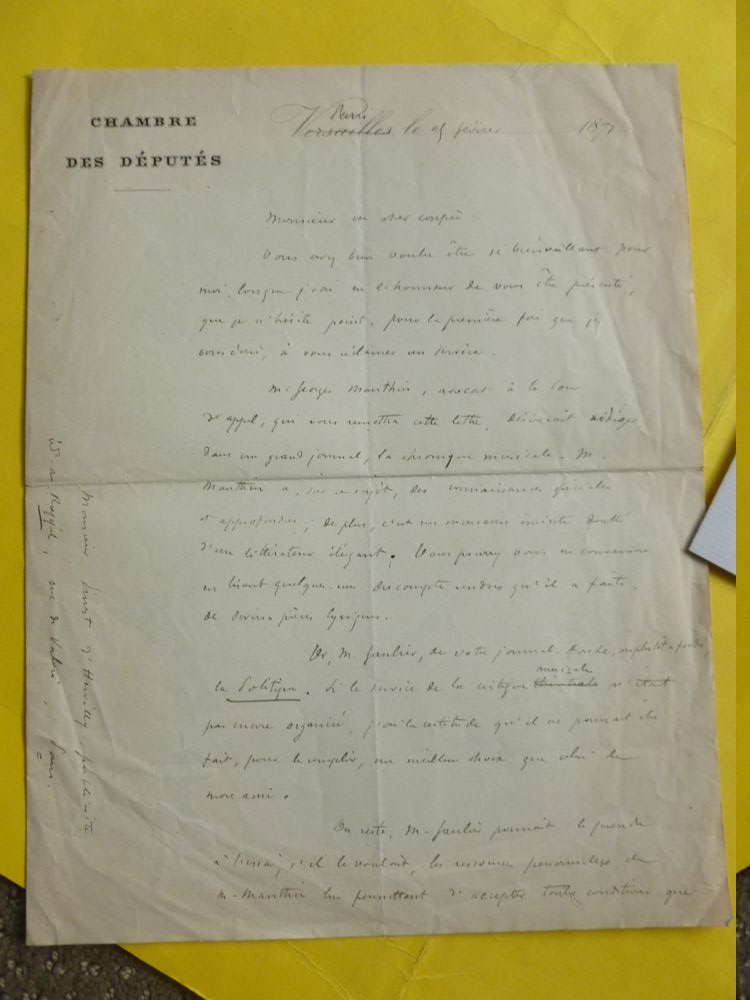 CHAMBRE
DES DÉPUTÉS
Paris
Versailles, le 25 février 187
Monsieur et cher confrère
Vous avez bien voulu être si bienveillant pour
moi, lorsque j'ai eu l'honneur de vous être présenté,
que je n'hésite point, pour la première fois que je
vous écris, à vous réclamer un service.
M. Georges Manthin, avocat à la Cour
d'appel, qui vous remettra cette lettre, désirerait rédiger
dans un grand journal, la chronique musicale. M.
Manthin a, sur ce sujet, des connaissances spéciales
et approfondies ; de plus, c'est un musicien émérite doublé
d'un littérateur élégant. Vous pourrez vous en convaincre
en lisant quelques-uns des comptes rendus qu'il a faits,
de diverses pièces lyriques.
Or, M. Gaulier, de votre journal, fonde, ou plutôt a fondé,
la Politique. Si le service de la critique musicale n'était
pas encore organisé, j'ai la certitude qu'il ne pourrait être
fait, pour le remplir, un meilleur choix que celui de
mon ami.
Du reste, M. Gaulier pourrait le prendre
à l'essai, s'il le voulait, les ressources personnelles de
M. Manthin lui permettant d'accepter toutes conditions que
Monsieur Ernest d'Hervilly, publiciste
au Rappel, rue de Valois, Paris.